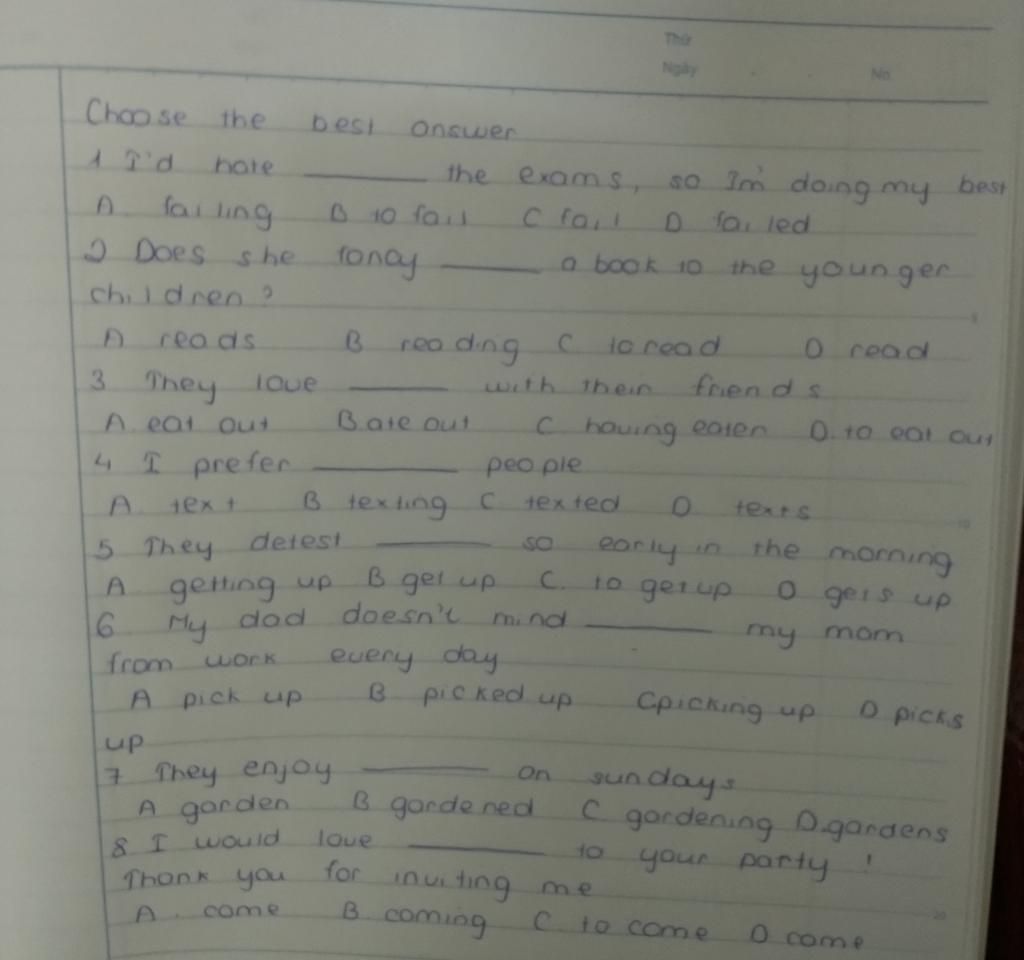 Thứ
Ngày No.
Choose the best answer
1 I'd hate ______ the exams, so I'm doing my best
A. failing B to fail C fail D failed
2 Does she fancy ______ a book to the younger
children?
A reads B reading C to read D read
3 They love ______ with their friends
A. eat out B ate out C having eaten D. to eat out
4 I prefer ______ people
A text B texting C texted D texts
5 They detest ______ so early in the morning
A getting up B get up C. to get up D gets up
6 My dad doesn't mind ______ my mom
from work every day
A pick up B picked up C picking up D picks
up
7 They enjoy ______ on sundays
A garden B gardened C gardening D. gardens
8 I would love ______ to your party !
Thank you for inviting me
A. came B. coming C. to come D come